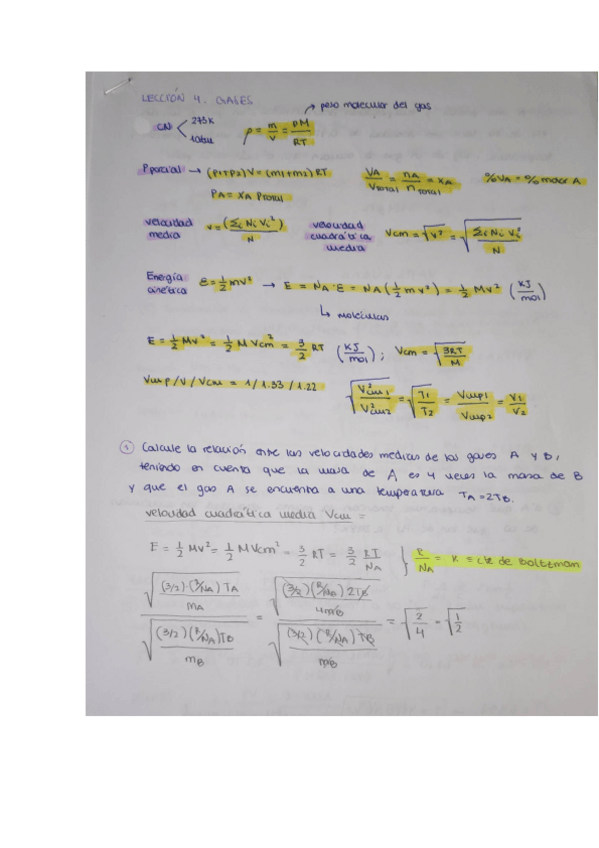 LECCIÓN 4. GASES
→ peso molecular del gas
CN < 273K
1 atm
ρ = m/V = PM/RT
P parcial → (P1+P2)V = (m1+m2) RT
VA/Vtotal = nA/ntotal = XA
%VA = %mol A
PA = XA Ptotal
velocidad media v = (Σi Ni Vi²)/N
velocidad cuadrática media Vcm = √v² = √(Σi Ni Vi²/N)
Energía cinética ε = 1/2 mv² → E = NA·ε = NA(1/2 mv²) = 1/2 Mv² (KJ/mol)
↳ moléculas
E = 1/2 Mv² = 1/2 M Vcm² = 3/2 RT (KJ/mol); Vcm = √(3RT/M)
Vmp/V/Vcm = 1/1.33/1.22
√(V²cm1/V²cm2) = √(T1/T2) = Vmp1/Vmp2 = V1/V2
① Calcule la relación entre las velocidades medias de los gases A y B,
teniendo en cuenta que la masa de A es 4 veces la masa de B
y que el gas A se encuentra a una temperatura TA = 2TB.
velocidad cuadrática media Vcm =
E = 1/2 Mv² = 1/2 M Vcm² = 3/2 RT = 3/2 RT/NA } R/NA = K ≡ cte de Boltzman
√((3/2)·(R/NA)TA/mA) / √((3/2)(R/NA)TB/mB) = √((3/2)(R/NA)2TB/4mB) / √((3/2)(R/NA)TB/mB) = √(2/4) = √(1/2)